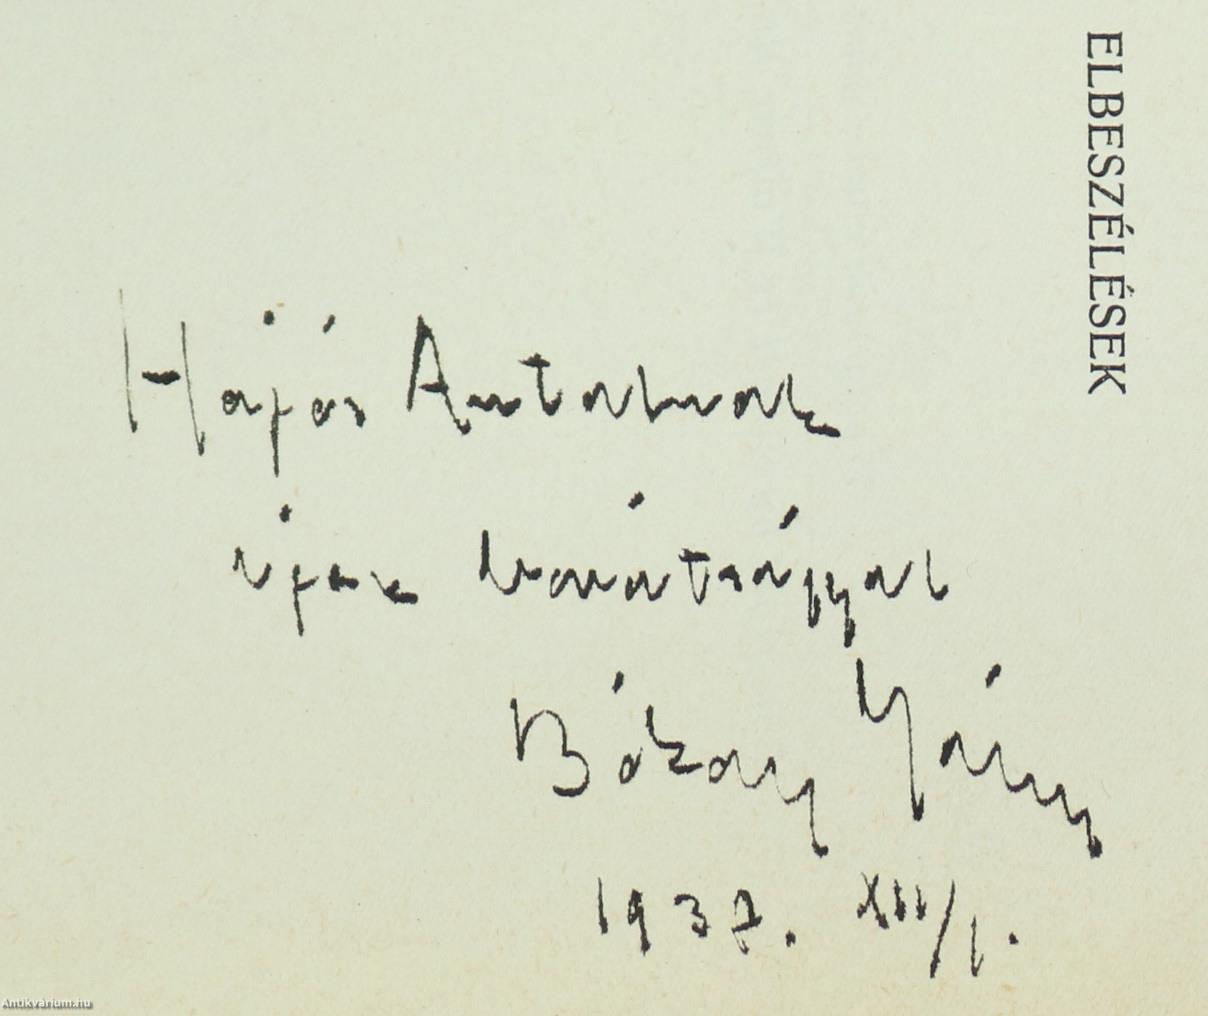 ELBESZÉLÉSEK
Hajós Antalnak
igaz barátsággal
Bókay János
1937. XII/1.
Antikvárium.hu